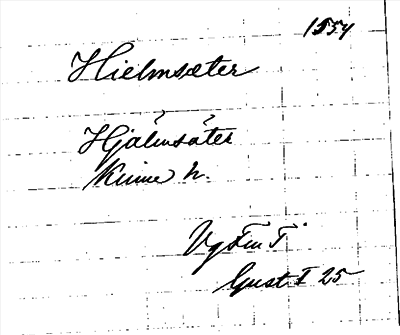 1554
Hielmsæter
Hjälmsäter
Kinne h.
Vg
Gust I 25